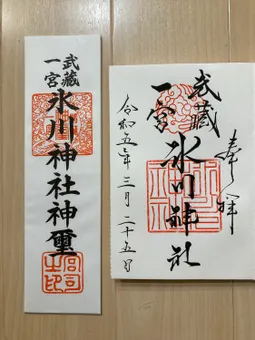 武蔵
一宮
氷川神社神璽
宮司
之印
奉拝
武蔵
一宮
氷川神社
令和五年三月二十五日